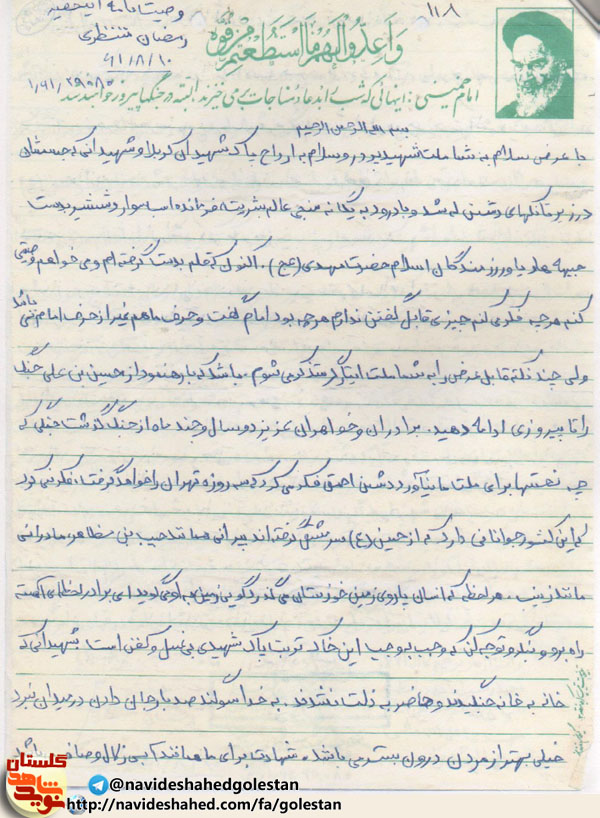 ۱۱۸
وصیت‌نامه اینحقیر
رمضان منتظری
۶۱/۸/۱۰
وَاَعِدّوا لَهُم مَا اسْتَطَعْتُم مِن قُوَّه
امام خمینی: اینهائی که شب را به دعا و مناجات برمی خیزند، البته در جنگها پیروز خواهند شد
بسم الله الرحمن الرحیم
با عرض سلام به شما ملت شهید پرور و سلام به ارواح پاک شهیدان کربلا و شهیدانی که جسمشان
در زیر تانکهای دشمن له شد و با درود به یگانه منجی عالم بشریت، فرمانده اسب سوار و شمشیر بدست
جبهه ها و یاور رزمندگان اسلام حضرت مهدی (عج). اکنون که قلم بدست گرفته ام و می خواهم وصیتی
کنم هر چه فکر می کنم چیزی قابل گفتن ندارم هر چه بود امام گفت و حرف ما هم غیر از حرف امام نمی باشد
ولی چند نکته قابل عرض را به شما ملت ایثارگر متذکر می شوم. باشد که با رهنمود از حسین بن علی جنگ
را تا پیروزی ادامه دهید. برادران و خواهران عزیز دو سال و چند ماه از جنگ گذشت جنگی که
چه نعمتها برای ملت ما نیاورد دشمن احمق فکر می کرد که سه روزه تهران را خواهد گرفت، فکر نمی کرد
که این کشور جوانانی دارد که از حسین (ع) سرمشق گرفته اند پیرانی همانند حبیب بن مظاهر، مادرانی
مانند زینب. هر لحظه که انسان پا روی زمین خوزستان می گذرد گویی زمین به او می گوید ای برادر لحظه ای آهسته
راه برو و بنگر و توجه کن که وجب به وجب این خاک تربت پاک شهیدی بی غسل و کفن است، شهیدانی که
خانه به خانه جنگیدند و حاضر به ذلت نشدند. به خدا سوگند صد بار جان دادن در میدان نبرد
خیلی بهتر از مردن درون بستر می باشد. شهادت برای ما همانند آبی زلال و صاف می باشد
گلستان
نوید شاهد
@navideshahedgolestan
http://navideshahed.com/fa/golestan